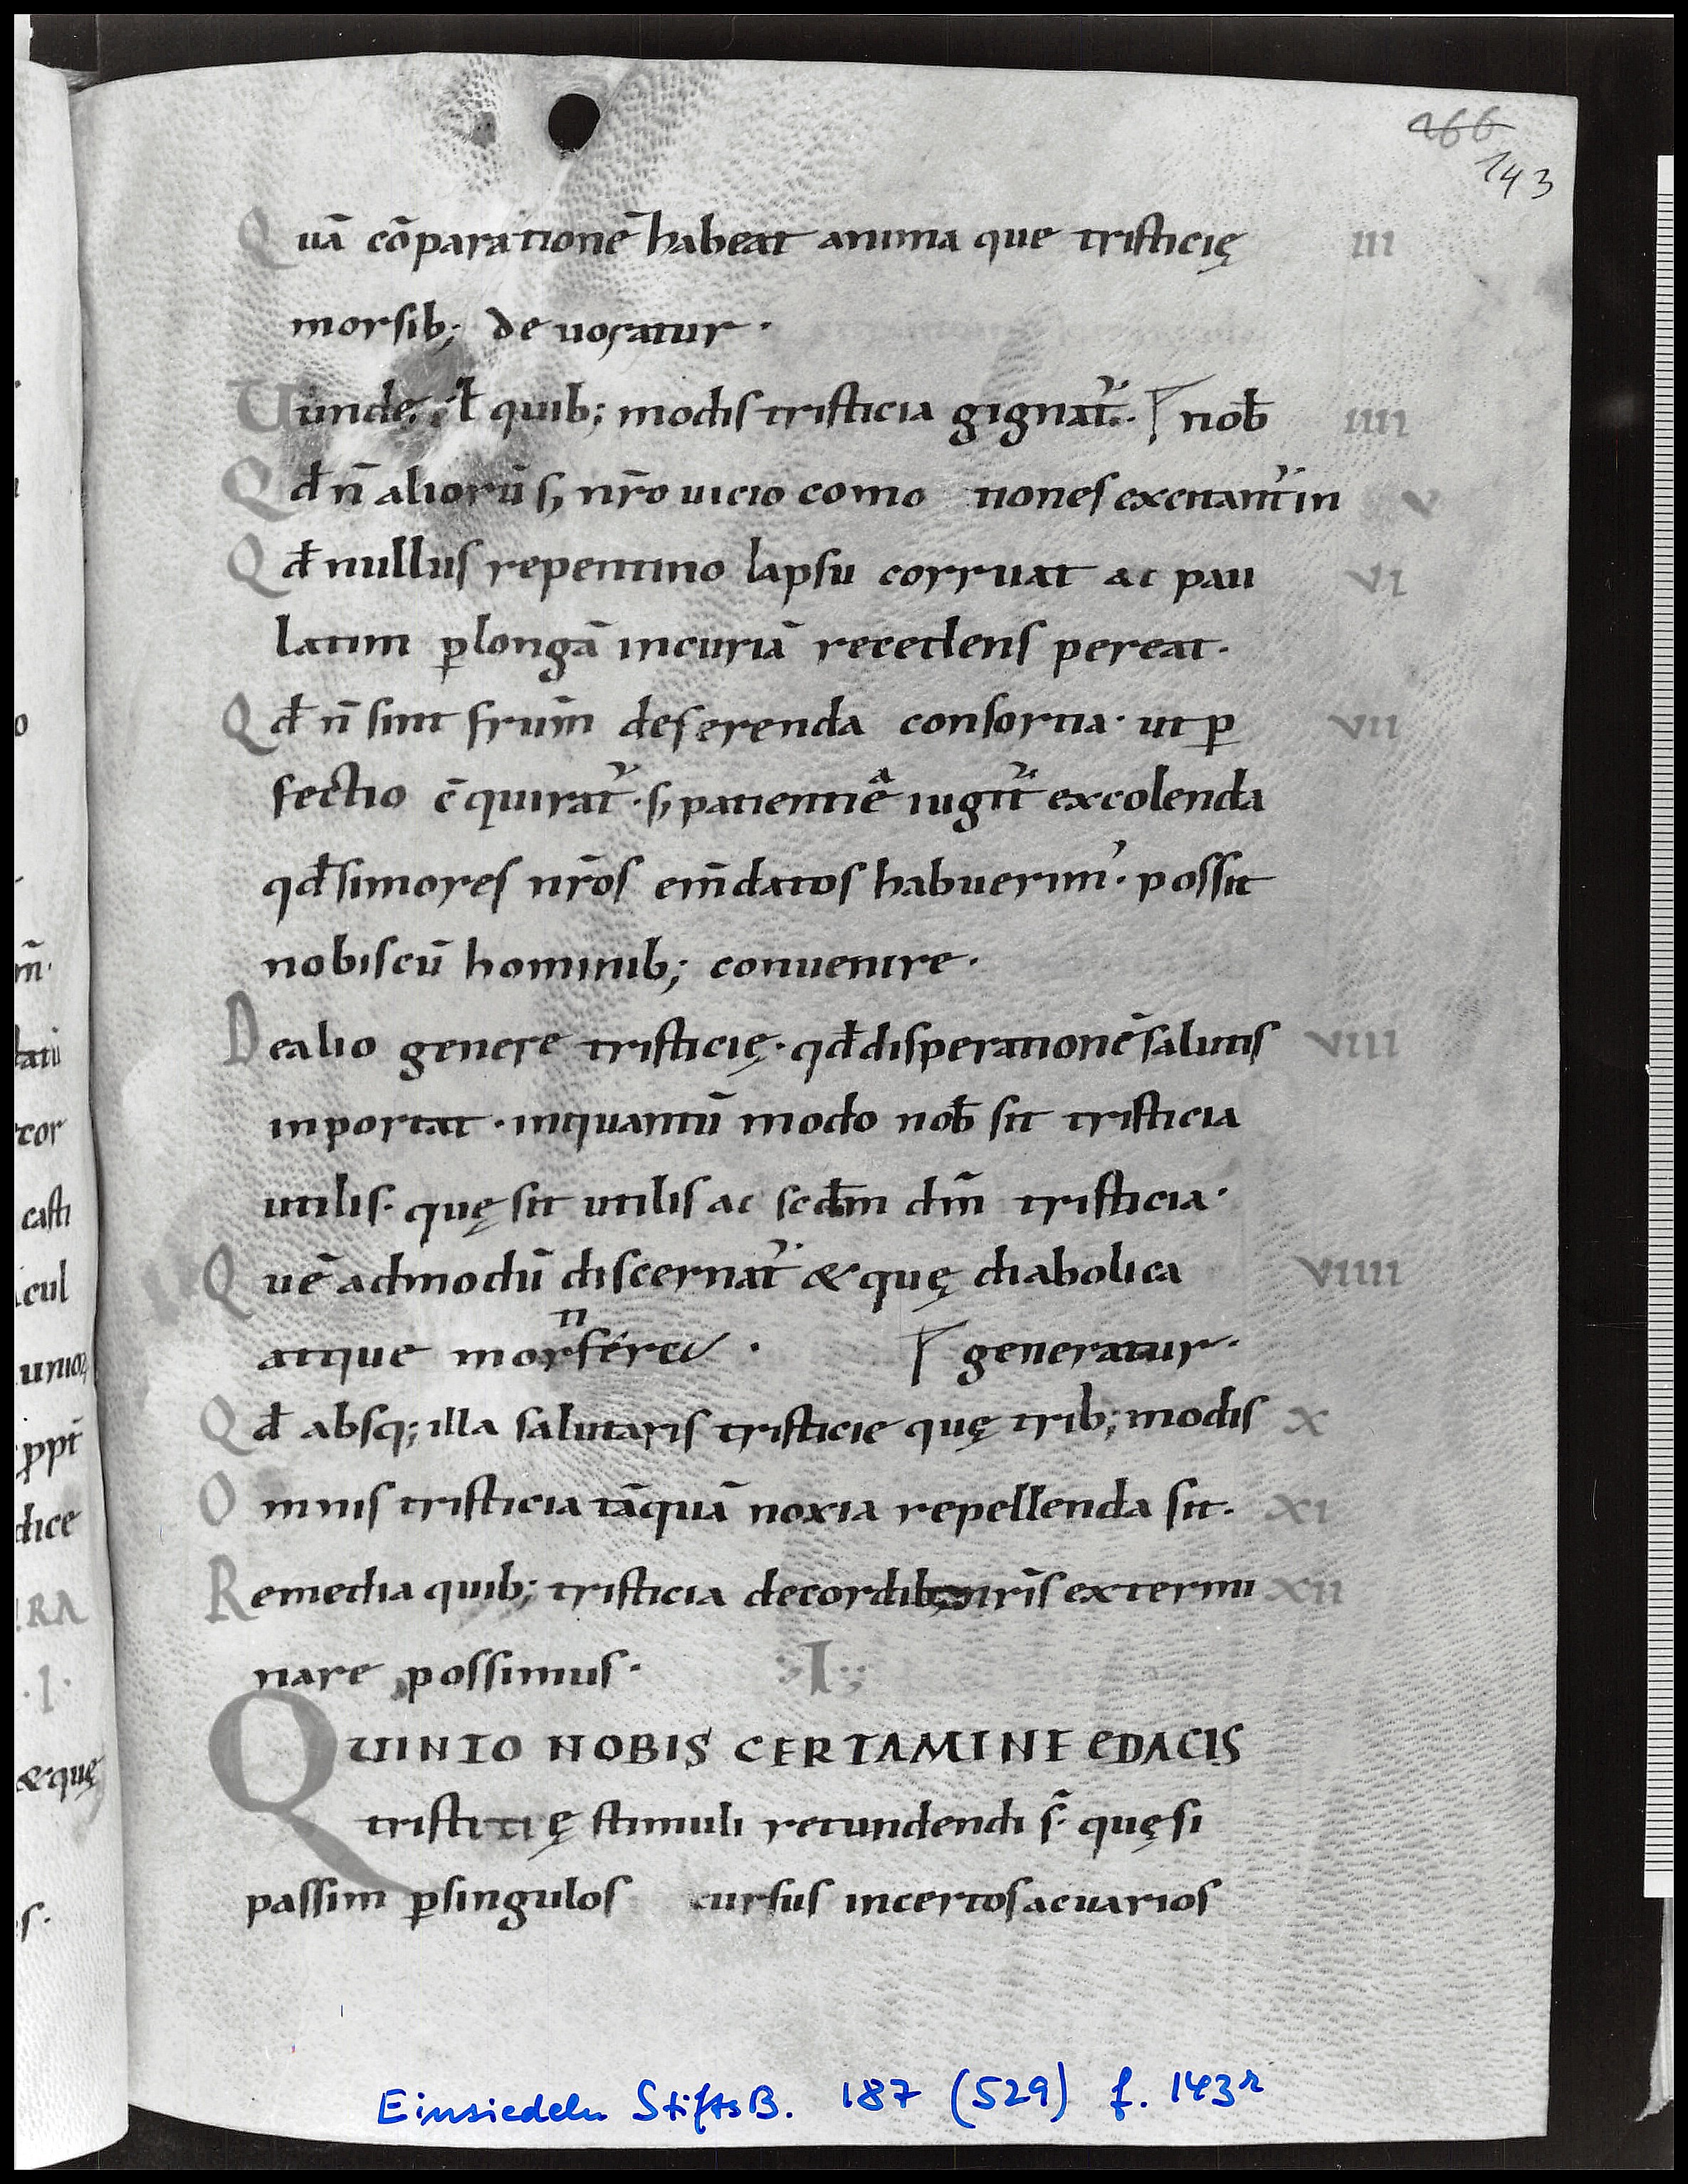 266
143
Quā cōparationē habeat anima que tristicię III
morsib; deuoratur.
Uunde. ł quib; modis tristicia gignat᷑. nob̄ IIII
Qđ n̄ aliorū sꝫ nr̄o uicio como tiones excitant᷑ in V
Qđ nullus repentino lapsu corruat ac pau VI
latim ꝑ longā incuriā recedens pereat.
Qđ n̄ sint frūm deserenda consortia. ut ꝑ VII
fectio c̄quirat᷑. sꝫ patientiēa iugit᷑ excolenda
qđ si mores nr̄os em̄datos habuerim᷒. possit
nobiscū hominib; conuenire.
De alio genere tristicię. qđ disperationē salutis VIII
inportat. inquantū modo nob̄ sit tristicia
utilis. quę sit utilis ac scđm dm̄ tristicia.
Quē admodū discernat᷑ & quę diabolica VIIII
n
atque morfere . generatur.
Qđ absq; illa salutaris tristicie quę trib; modis X
Omnis tristicia tāquā noxia repellenda sit. XI
Remedia quib; tristicia de cordib; nr̄is extermi XII
nare possimus. I
QUINTO NOBIS CERTAMINE EDACIS
tristitię stimuli retundendi s̄. quę si
passim ꝑ singulos cursus incertos ac uarios
Einsiedeln StiftsB. 187 (529) f. 143r